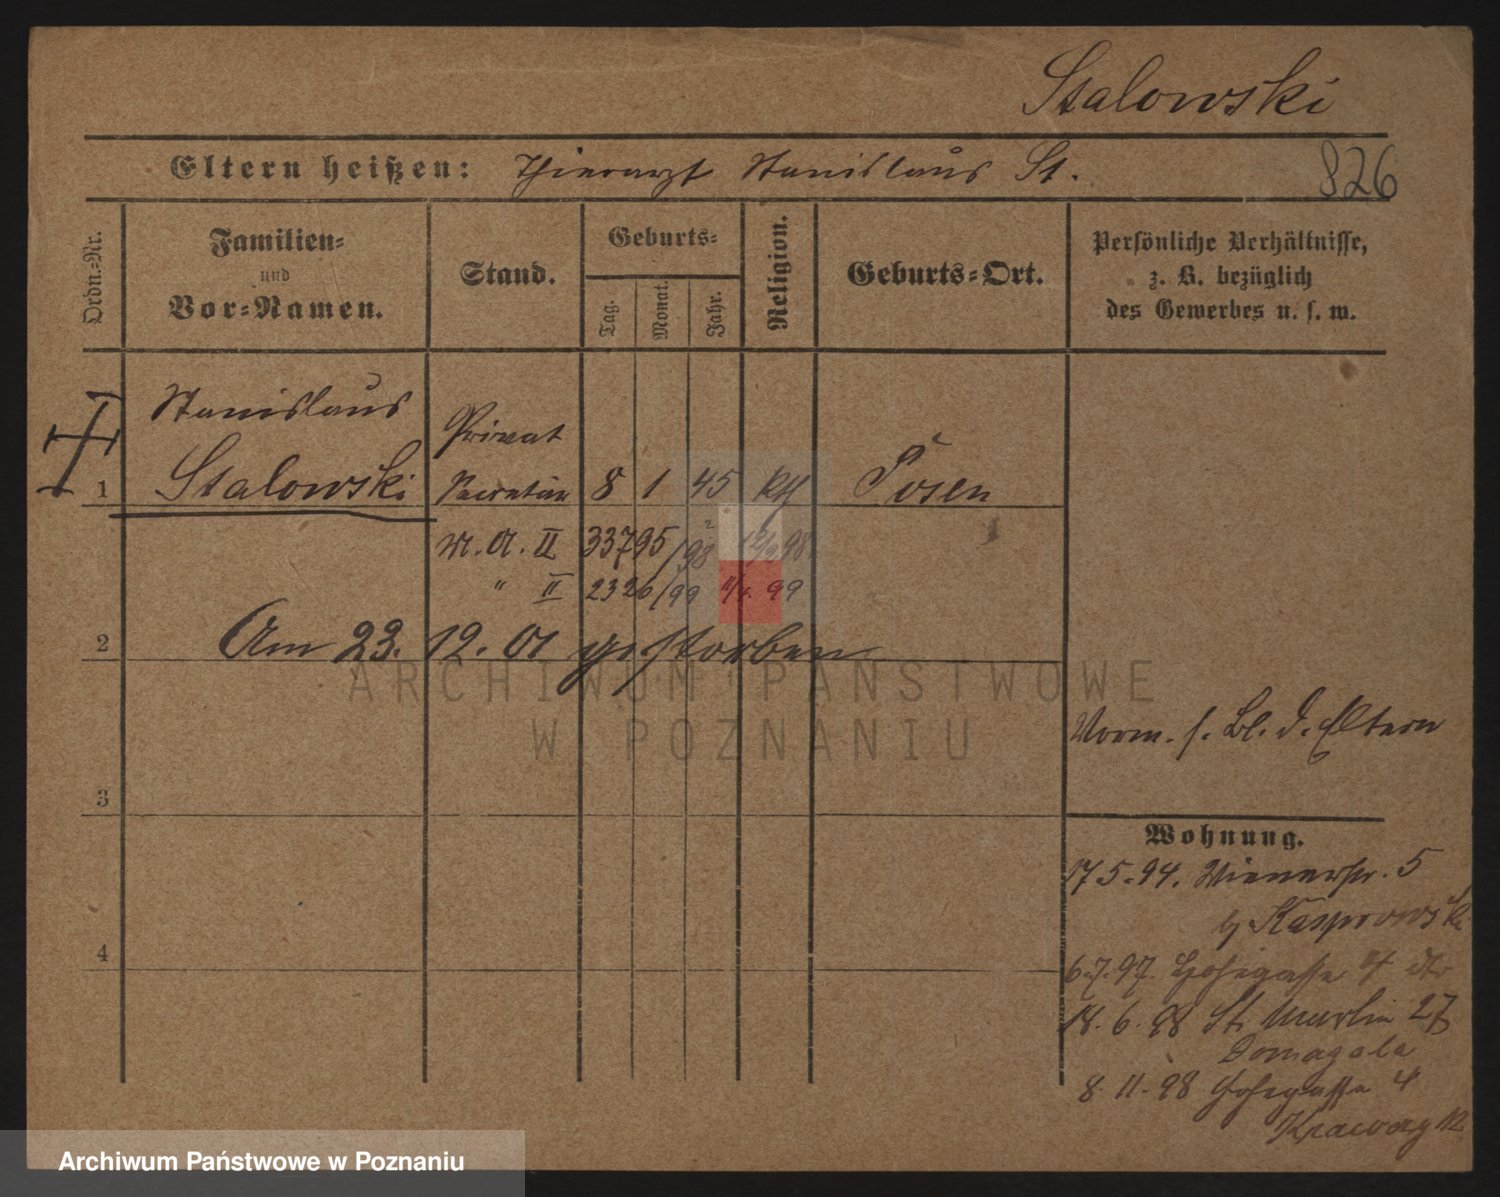 Stalowski
Eltern heißen: Thierarzt Stanislaus St.
826
Ordn.-Nr.
Familien-
und
Vor-Namen.
Stand.
Geburts-
Tag.
Monat.
Jahr.
Religion.
Geburts-Ort.
Persönliche Verhältnisse,
z. B. bezüglich
des Gewerbes u. s. w.
Stanislaus
Privat
1 Stalowski Secretär 8 1 45 kth Posen
M. A. II 33795/98 98
" II 2326/99 99
2 Am 23. 12. 01 gestorben
ARCHIWUM PAŃSTWOWE
W POZNANIU
Vorm. s. Bl. d. Eltern
3
Wohnung.
17 5. 94. Wienerstr. 5
b/ Kasprowski
4
6.7.97. Hohegasse 4
18. 6. 98 St. Martin 27
Domagala
8. 11. 98 Hohegasse 4
Archiwum Państwowe w Poznaniu